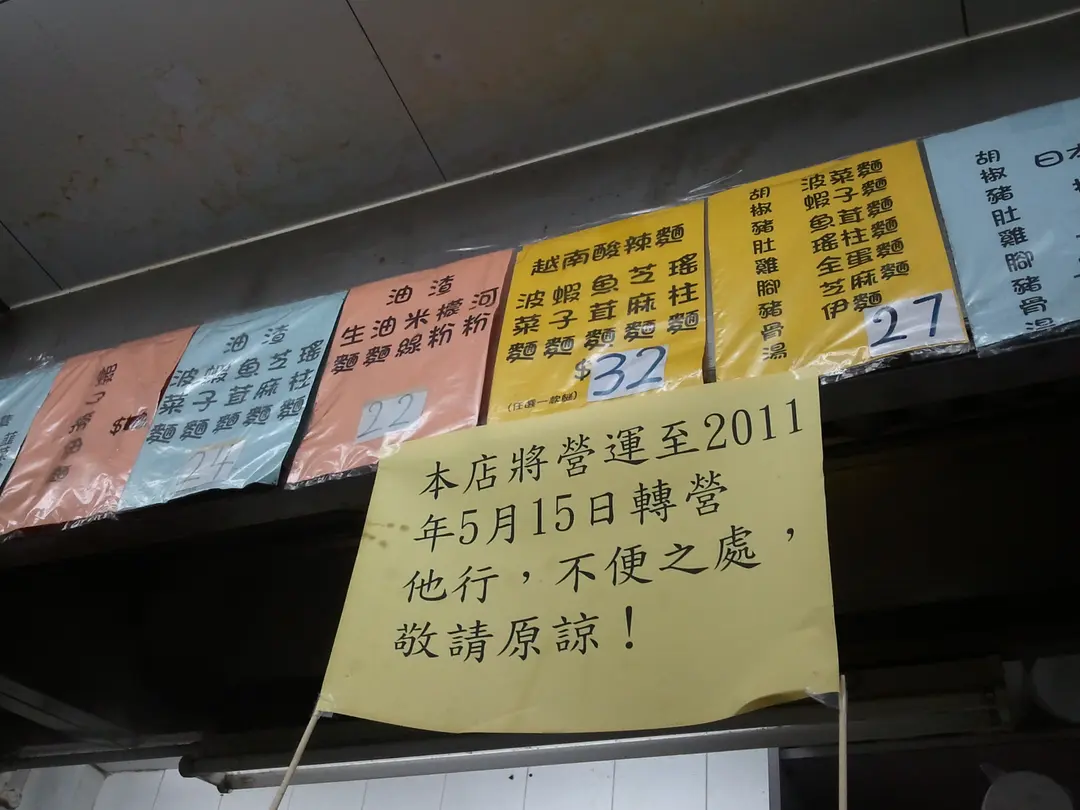 油渣
波蝦魚芝瑤
菜子茸麻柱
麵麵麵麵麵
24
油渣
生油米檬河
麵麵線粉粉
22
越南酸辣麵
波蝦魚芝瑤
菜子茸麻柱
麵麵麵麵麵
$32
(任選一款麵)
胡椒豬肚雞腳豬骨湯
波菜麵
蝦子麵
魚茸麵
瑤柱麵
全蛋麵
芝麻麵
伊麵
27
胡椒豬肚雞腳豬骨湯
本店將營運至2011
年5月15日轉營
他行，不便之處，
敬請原諒！